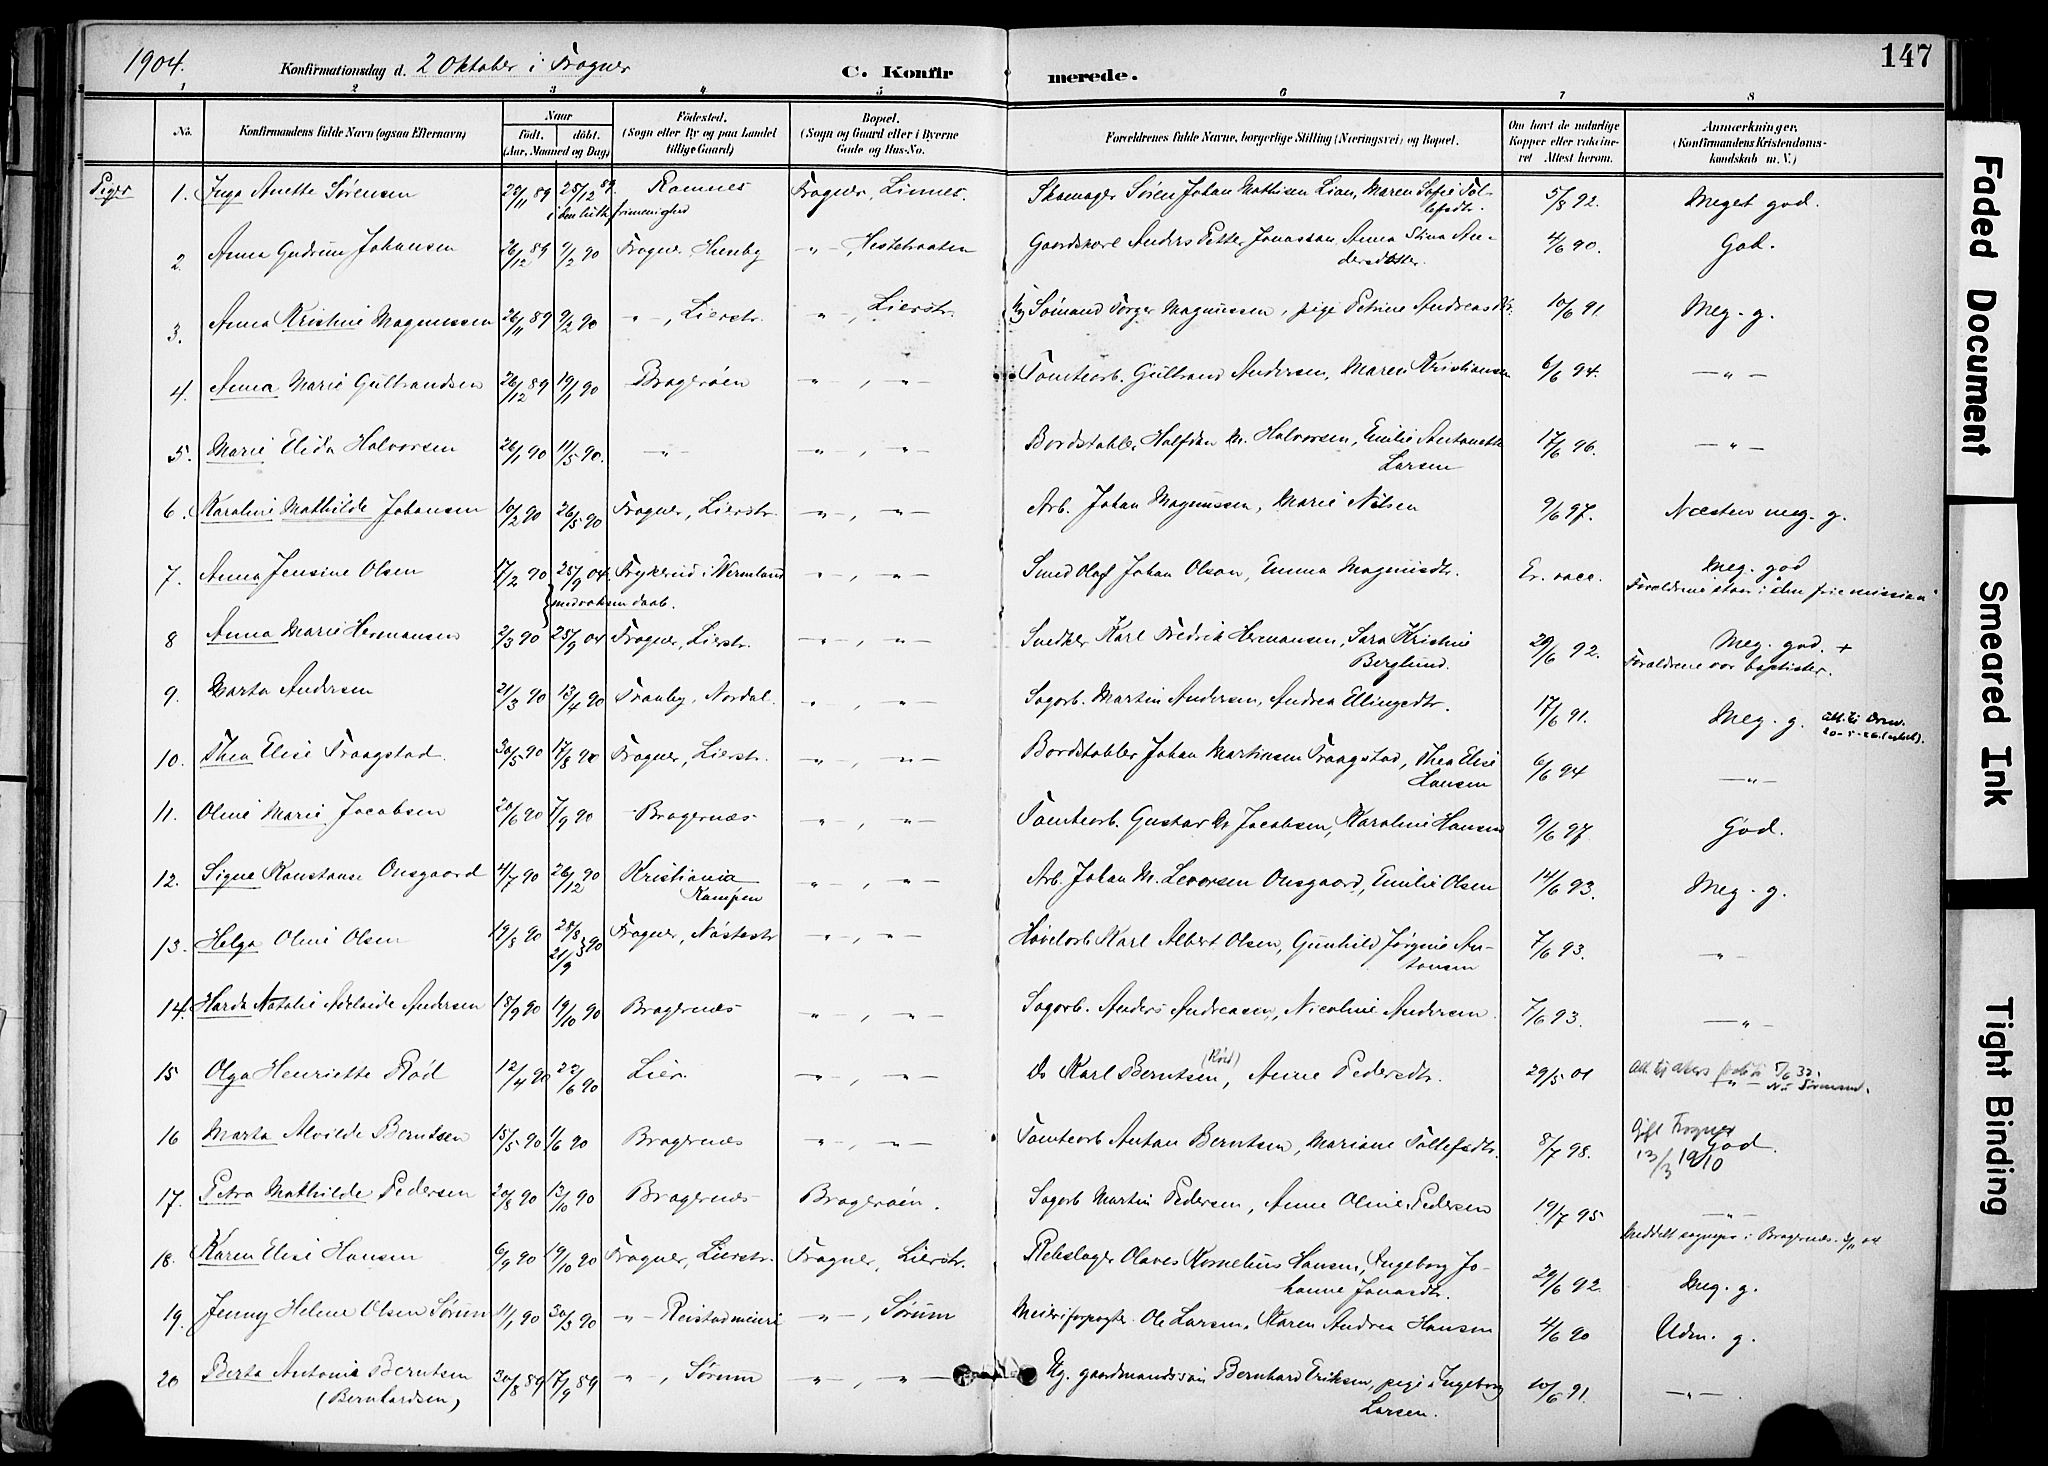 1904. Konfirmationsdag d. 2 Oktober i Frogner C. Konfirmerede. 147
1 2 3 4 5 6 7 8
No. Konfirmandens fulde Navn (ogsaa Efternavn) Naar født. døbt. (Aar, Maaned og Dag) Fødested. (Sogn eller By og paa Landet tillige Gaard) Bopæl. (Sogn og Gaard eller i Byerne Gade og Hus-No. Forældrenes fulde Navne, borgerlige Stilling (Næringsvei) og Bopæl. Om havt de naturlige Kopper eller vaccineret Attest herom. Anmærkninger. (Konfirmandens Kristendomskundskab m. V.)
Piger 1. Inga Anette Sørensen 22/11 89 25/12 89. Ramnes Frogner, Linnes. Skomager Søren Johan Mathisen Lian, Maren Sofie Tol- 5/8 92. Meget god.
i den luth. frimenighed lefsdtr.
2. Anna Gudrun Johansen 26/12 89 9/2 90 Frogner Huseby -"-, Hestehaaten Gaardskarl Anders Petter Jonassen Anna Stina An- 4/6 90. God.
dersdatter.
3. Anna Kristine Magnussen 26/11 89 9/2 90 -"-, Lierstr. -"-, Lierstr. Ug Sømand Torger Magnussen, pige Petrine Andreasdtr. 10/6 91. Meg. g.
4. Anna Marie Gulbrandsen 26/12 89 19/1 90 Bragerøen -"-, -"- Tomteorb. Gulbrand Andersen, Maren Kristiansen 6/6 94. -"-
5. Marie Elida Halvorsen 26/1 90 11/5 90. -"- -"-, -"- Bordstabler Halfdan M. Halvorsen, Emilie Antonette 17/6 96. -"-
Larsen
6. Karoline Mathilde Johansen 10/2 90 26/5 90 Frogner, Lierstr. -"-, -"- Arb. Johan Magnussen, Marie Nilsen 9/6 97. Næsten meg. g.
7. Anna Jensine Olsen 17/2 90 25/9 04. Frykerud i Vermland -"-, -"- Smed Olaf Johan Olson, Emma Magnusdtr. Er vacc. Meg. god
med voksen daab. Forældrene staar i "den frie mission"
8 Anna Marie Hermansen 2/3 90 25/9 04 Frogner, Lierstr. -"-, -"- Snedker Karl Fredrik Hermansen, Sara Kristine 29/6 92. Meg. god. +
Berglund. Forældrene var baptister.
9. Marta Andersen 21/3 90 13/4 90 Tranby, Nordal. -"-, -"- Sagarb. Martin Andersen, Andrea Elingsdtr. 17/6 91. Meg. g.
10. Thea Elise Fraagstad 30/5 90 17/8 90 Frogner, Lierstr. -"-, -"- Bordstabler Johan Martinsen Fraagstad, Thea Elise 6/6 94 -"-
Hansen
11. Oline Marie Jacobsen 20/6 90 7/9 90 Bragernæs -"-, -"- Tomteorb. Gustav M. Jacobsen, Karoline Hansen 9/6 97 God.
12. Signe Konstanse Onsgaard 4/7 90 26/12 90 Kristiania -"-, -"- Arb. Johan M. Levorsen Onsgaard, Emilie Olsen 14/6 93. Meg. g.
Kampen
13. Helga Oline Olsen 19/8 90 28/8 21/9 } 90 Frogner, Nøstestr -"-, -"- Høvelorb Karl Albert Olsen, Gunhild Jørgine An- 7/6 93. -"-
tonsen
14. Harda Natalie Adelaide Andersen 18/9 90 19/10 90 Bragernæs -"-, -"- Sagorb. Anders Andreasen, Nicoline Andersen 7/6 93. -"-
15 Olga Henriette Rød 12/4 90 22/6 90 Lier. -"-, -"- Do Karl Berntsen (Rød), Anne Pedersdtr. 29/5 01
16 Marta Alvilde Berntsen 15/5 90 1/6 90 Bragernæs -"-, -"- Tomteorb Anton Berntsen, Mariane Tollefsdtr. 8/7 98. Gift Frogner God.
13/3 1910
17. Petra Mathilde Pedersen 20/8 90 12/10 90 Bragernæs Bragerøen. Sagorb Martin Pedersen, Anne Oline Pedersen 19/7 95 -"-
18. Karen Elise Hansen 6/9 90 19/10 90 Frogner, Lierstr. Frogner, Lierstr. Rebslager Olaves Kornelius Hansen, Ingeborg Jo- 29/6 92. Meg. g.
hanne Jonasdtr.
19. Jenny Helene Olsen Sørum 11/1 90 30/3 90 -"- Reistadmeieri -"-, Sørum Meieriforpagter Ole Larsen, Karen Andrea Hansen 4/6 90 Udm. g.
20 Berta Antonie Berntsen 30/8 89 17/9 89 -"-, Sørum -"-, -"- Ug. gaardmandssøn Bernhard Eriksen, pige Ingeborg 10/6 91. -"-.
(Bernhardsen) Larsen.
Faded Document
Smeared Ink
Tight Binding